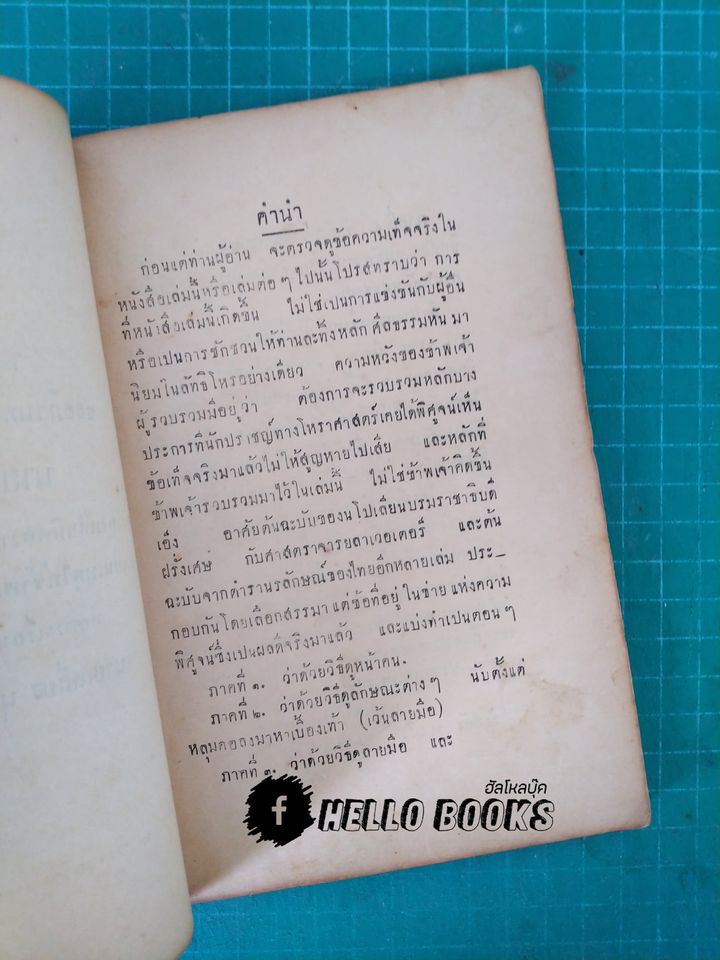 คำนำ
ก่อนแต่ท่านผู้อ่าน จะตรวจดูข้อความเท็จจริงใน
หนังสือเล่มนี้หรือเล่มต่อ ๆ ไปนั้นโปรสทราบว่า การ
ที่หนังสือเล่มนี้เกิดขึ้น ไม่ใช่เปนการแข่งขันกับผู้อื่น
หรือเปนการชักชวนให้ท่านละทิ้งหลัก ศีลธรรมหัน มา
นิยมในลัทธิโหรอย่างเดียว ความหวังของข้าพเจ้า
ผู้รวบรวมมีอยู่ว่า ต้องการจะรวบรวมหลักบาง
ประการที่นักปราชญ์ทางโหราศาสตร์เคยได้พิศูจน์เห็น
ข้อเท็จจริงมาแล้วไม่ให้สูญหายไปเสีย และหลักที่
ข้าพเจ้ารวบรวมมาไว้ในเล่มนี้ ไม่ใช่ข้าพเจ้าคิดขึ้น
เอง อาศัยต้นฉะบับของนโปเลียนบรมราชาธิบดี
ฝรั่งเศษ กับศาสตราจารยลาเวอเตอร์ และต้น
ฉะบับจากตำรานรลักษณ์ของไทยอีกหลายเล่ม ประ–
กอบกันโดยเลือกสรรมา แต่ข้อที่อยู่ ในข่าย แห่งความ
พิศูจน์ซึ่งเปนผลดีจริงมาแล้ว และแบ่งทำเปนตอน ๆ
ภาคที่ ๑. ว่าด้วยวิธีดูหน้าคน.
ภาคที่ ๒. ว่าด้วยวิธีดูลักษณะต่าง ๆ นับตั้งแต่
หลุมคอลงมาหาเบื้องเท้า (เว้นลายมือ)
ภาคที่ ๓. ว่าด้วยวิธีดูลายมือ และ
ฮัลโหลบุ๊ค
f HELLO BOOKS